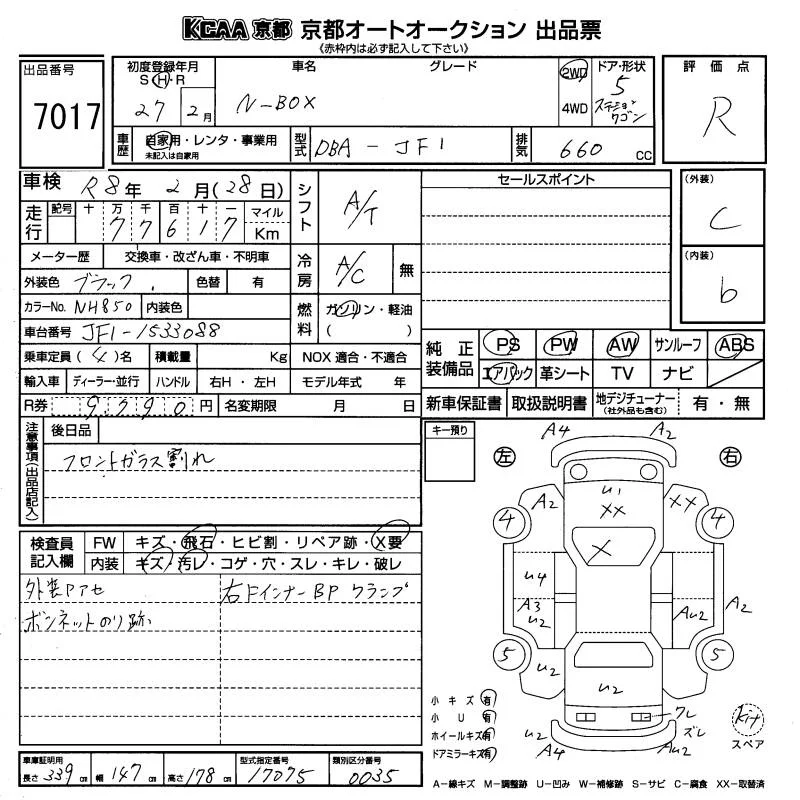 KCAA 京都 京都オートオークション 出品票
《赤枠内は必ず記入して下さい》
出品番号
7017
初度登録年月
S・H・R
27 2月
車名
N-BOX
グレード
2WD
4WD
ドア・形状
5
ステーションワゴン
評価点
R
車歴
自家用・レンタ・事業用
未記入は自家用
型式
DBA - JF1
排気
660 cc
車検 R8年 2月(28日)
走行
記号 十 万 千 百 十 一 マイル
7 7 6 1 7 Km
シフト
A/T
セールスポイント
(外装)
C
(内装)
b
メーター歴 交換車・改ざん車・不明車
冷房
A/C 無
外装色 ブラック 色替 有
カラーNo. NH850 内装色
燃料
ガソリン・軽油
( )
車台番号 JF1-1533088
乗車定員(4)名 積載量 Kg NOX 適合・不適合
輸入車 ディーラー・並行 ハンドル 右H・左H モデル年式 年
R券 9790円 名変期限 月 日
純正装備品
PS PW AW サンルーフ ABS
エアバック 革シート TV ナビ
新車保証書 取扱説明書 地デジチューナー(社外品も含む) 有・無
注意事項(出品店記入)
後日品
フロントガラス割れ
キー預り
検査員記入欄
FW キズ・飛石・ヒビ割・リペア跡・X要
内装 キズ・汚レ・コゲ・穴・スレ・キレ・破レ
外装Pアセ 右Fインナー BP クランプ
ボンネットのり跡
左 右
A4 A2
U1
XX XX
A2
4 4
X
U4
A3
U2
AU2 A2
5 5
U2
U2
クレ
ズレ
U2
A4 AU2
kit
スペア
小キズ 有
小U 有
ホイールキズ 有
ドアミラーキズ 有
車庫証明用
長さ 339cm 幅 147cm 高さ 178cm
型式指定番号
17075
類別区分番号
0035
A-線キズ M-調整跡 U-凹み W-補修跡 S-サビ C-腐食 XX-取替済